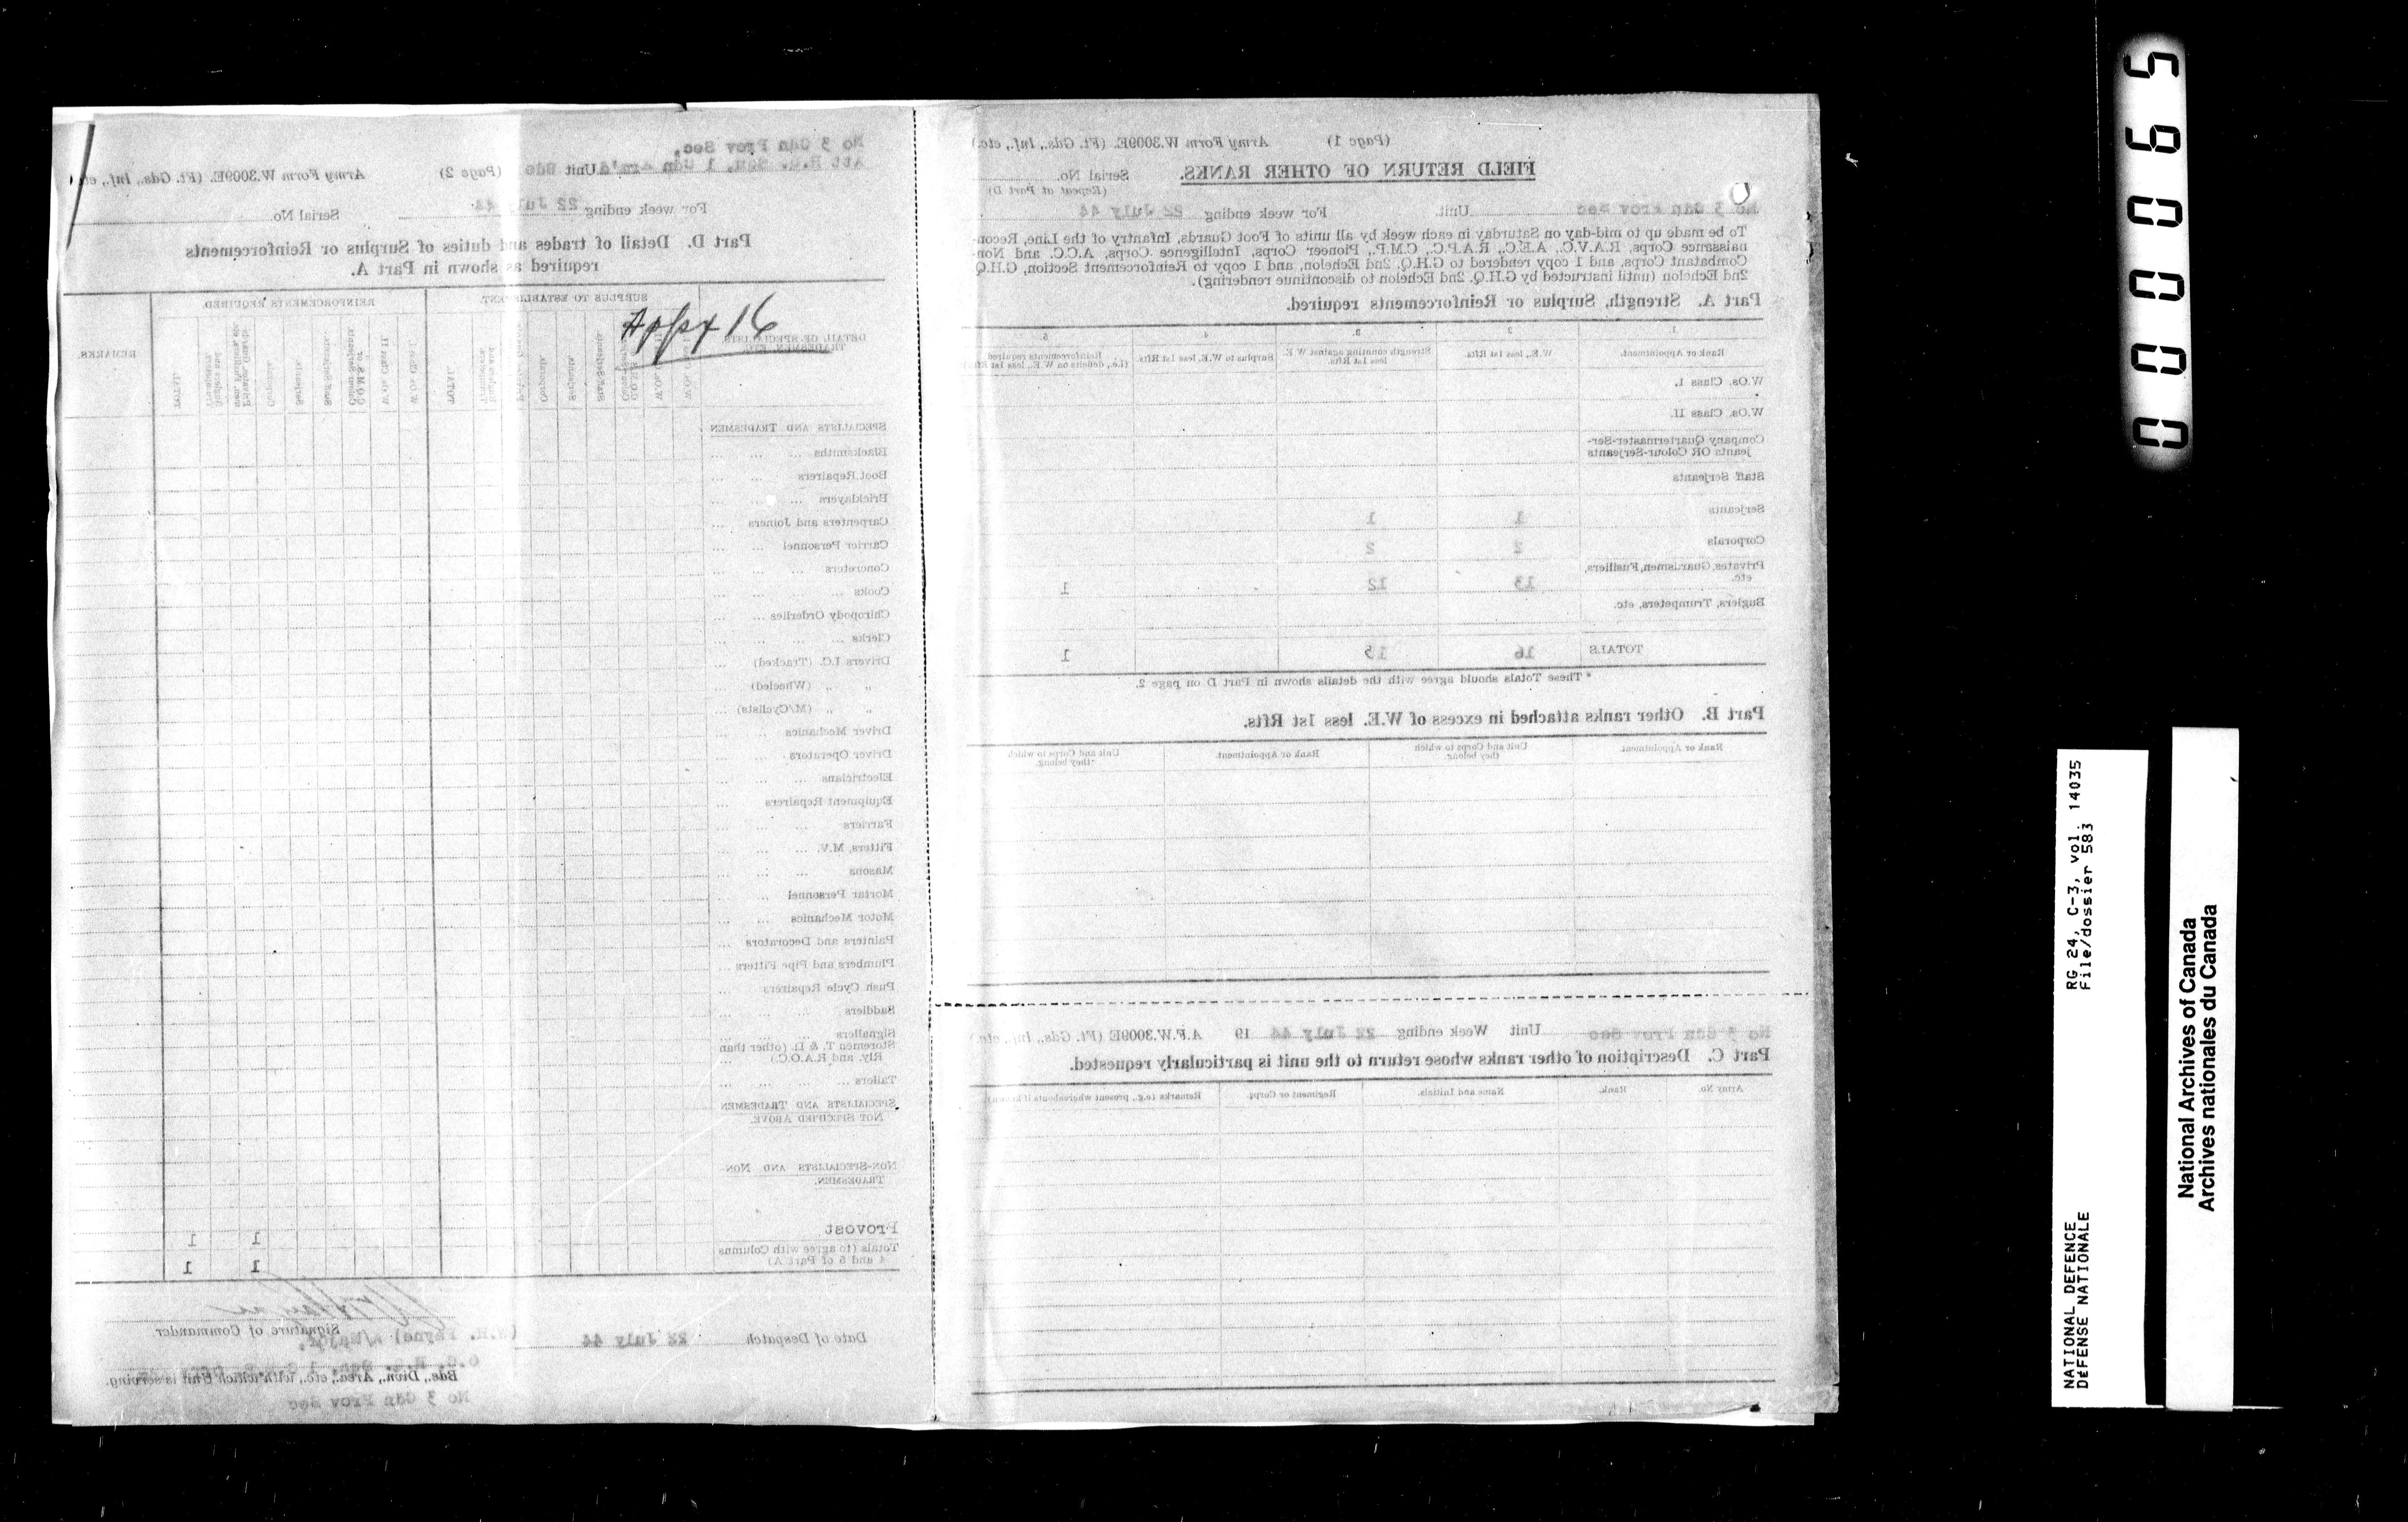 Appx 16
(Page 1) Army Form W.3009E. (Ft. Gds., Inf., etc.)
FIELD RETURN OF OTHER RANKS.
Serial No.
(Repeat at Part D)
No 3 Cdn Prov Sec Unit. For week ending 22 July 44
To be made up to mid-day on Saturday in each week by all units of Foot Guards, Infantry of the Line, Recon-
naissance Corps, R.A.V.C., A.E.C., R.A.P.C., C.M.P., Pioneer Corps, Intelligence Corps, A.C.C. and Non-
Combatant Corps, and 1 copy rendered to G.H.Q. 2nd Echelon, and 1 copy to Reinforcement Section, G.H.Q.
2nd Echelon (until instructed by G.H.Q. 2nd Echelon to discontinue rendering).
Part A. Strength, Surplus or Reinforcements required.
1. 2. 3. 4. 5.
Rank or Appointment. W.E., less 1st Rfts. Strength counting against W.E. less 1st Rfts. Surplus to W.E. less 1st Rfts. Reinforcements required (i.e., deficits on W.E., less 1st Rfts.)
W.Os. Class I.
W.Os. Class II.
Company Quartermaster-Ser-
jeants OR Colour-Serjeants
Staff Serjeants
Serjeants 1 1
Corporals 2 2
Privates, Guardsmen, Fusiliers, etc. 13 12 1
Buglers, Trumpeters, etc.
TOTALS 16 15 1
* These Totals should agree with the details shown in Part D on page 2.
Part B. Other ranks attached in excess of W.E. less 1st Rfts.
Rank or Appointment. Unit and Corps to which they belong. Rank or Appointment. Unit and Corps to which they belong.
No 3 Cdn Prov Sec Unit Week ending 22 July 44 19 A.F.W.3009E (Ft. Gds., Inf., etc.)
Part C. Description of other ranks whose return to the unit is particularly requested.
Army No. Rank. Name and Initials. Regiment or Corps. Remarks (e.g., present whereabouts if known)
No 3 Cdn Prov Sec,
Att H.Q. Sqn, 1 Cdn Arm'd Bde Unit (Page 2) Army Form W.3009E. (Ft. Gds., Inf., etc.)
For week ending 22 July 44 Serial No.
Part D. Detail of trades and duties of Surplus or Reinforcements
required as shown in Part A.
DETAIL OF SPECIALISTS TRADESMEN, ETC. SURPLUS TO ESTABLISHMENT. REINFORCEMENTS REQUIRED. REMARKS.
SPECIALISTS AND TRADESMEN
Blacksmiths
Boot Repairers
Bricklayers
Carpenters and Joiners
Carrier Personnel
Concreters
Cooks
Chiropody Orderlies
Clerks
Drivers I.C. (Tracked)
" " (Wheeled)
" " (M/Cyclists)
Driver Mechanics
Driver Operators
Electricians
Equipment Repairers
Farriers
Fitters, M.V.
Masons
Mortar Personnel
Motor Mechanics
Painters and Decorators
Plumbers and Pipe Fitters
Push Cycle Repairers
Saddlers
Signallers
Storemen T. & D. (other than
Rly. and R.A.O.C.)
Tailors
SPECIALISTS AND TRADESMEN
NOT SPECIFIED ABOVE.
NON-SPECIALISTS AND NON-
TRADESMEN.
Provost 1 1
Totals (to agree with Columns
4 and 5 of Part A) 1 1
Date of Despatch 22 July 44
Signature of Commander
Bde., Divn., Area, etc., with which Unit is serving.
No 3 Cdn Prov Sec
000065
RG 24, C-3, vol. 14035
File/dossier 583
NATIONAL DEFENCE
DÉFENSE NATIONALE
National Archives of Canada
Archives nationales du Canada